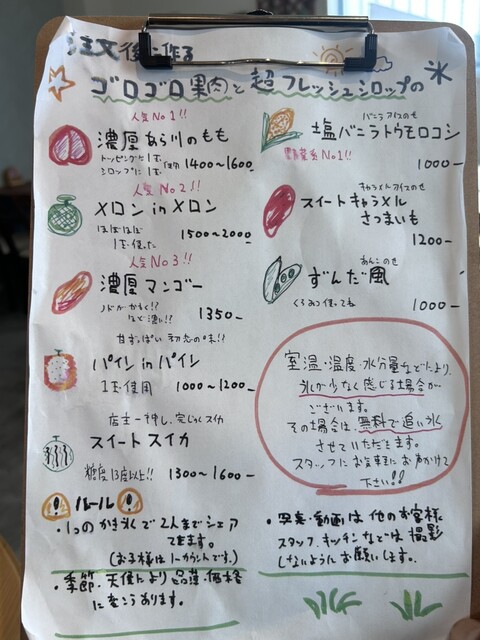 注文後に作る
ゴロゴロ果肉と超フレッシュシロップの氷
人気No1!!
濃厚あら川のもも
1400〜1600
人気No2!!
メロンinメロン
ほぼほぼ
1玉使った
1500〜2000
人気No3!!
濃厚マンゴー
1350-
甘ずっぱい初恋の味!!
パインinパイン
1玉使用
1000〜1200-
店主一押し、完じゅくスイカ
スイートスイカ
糖度13度以上!! 1300〜1600-
バニラアイスのせ
塩バニラトウモロコシ
野菜系No1!!
1000-
キャラメルアイスのせ
スイートキャラメル
さつまいも
1200-
あんこのせ
ずんだ風
くろみつ使ってね
1000-
室温・温度・水分量などにより、
氷が少なく感じる場合が
ございます。
その場合は、無料で追い氷
させていただきます。
スタッフにお気軽にお声かけて
下さい!!
ルール
・1つのかき氷で2人までシェア
できます。
(お子様は1カウントです。)
・季節、天候により品薄・価格
に変こうあります。
・写真・動画は他のお客様
スタッフ、キッチンなどは撮影
しないようにお願いします。